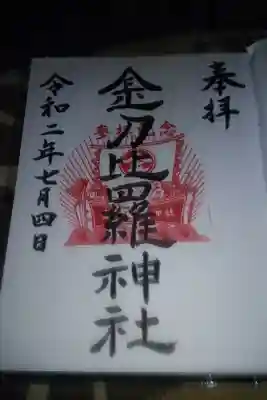 奉拝
金刀比羅神社
令和二年七月四日